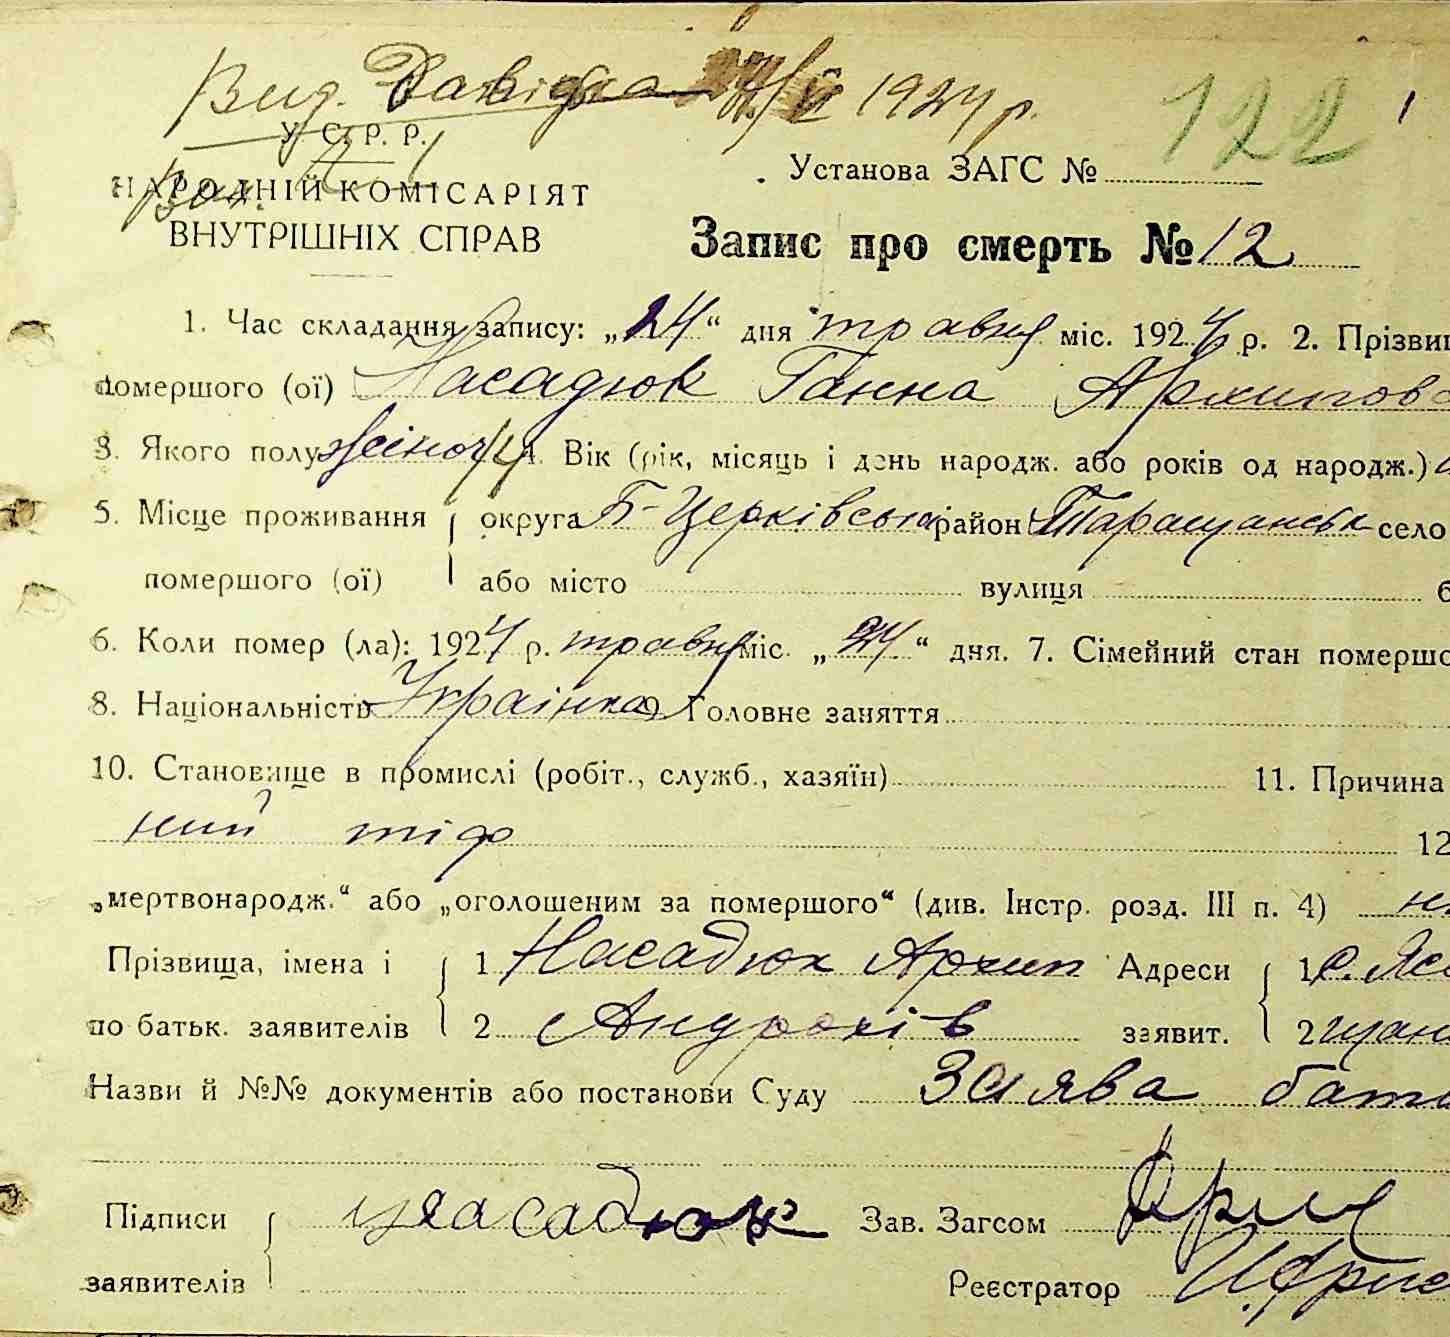 Вид. Давідка 1924 р.
122
У. С. Р. Р.
Установа ЗАГС №
НАРОДНІЙ КОМІСАРІЯТ
ВНУТРІШНІХ СПРАВ
Запис про смерть № 12
1. Час складання запису: „24“ дня травня міс. 1924 р. 2. Прізвищ
помершого (ої) Насадюк Ганна Архипов
3. Якого полу жіноч 4. Вік (рік, місяць і день народж. або років од народж.)
5. Місце проживання округа Б-Церківська район Таращанськ село
помершого (ої) або місто вулиця
6. Коли помер (ла): 1924 р. травня міс. „24“ дня. 7. Сімейний стан помершо
8. Національність Українка Головне заняття
10. Становище в промислі (робіт., служб., хазяїн) 11. Причина
ний тіф 12
„мертвонародж.“ або „оголошеним за помершого“ (див. Інстр. розд. III п. 4)
Прізвища, імена і 1 Насадюк Архип Адреси 1 с. Яс
по батьк. заявителів 2 Андрохів заявит. 2 щан
Назви й №№ документів або постанови Суду Заява бать
Підписи Насадюк Зав. Загсом
заявителів Реєстратор